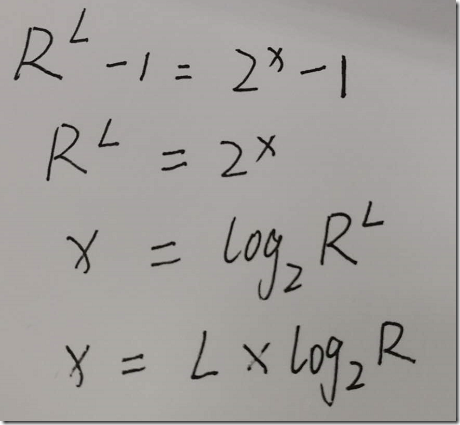 R^L - 1 = 2^x - 1
R^L = 2^x
x = log₂ R^L
x = L × log₂ R